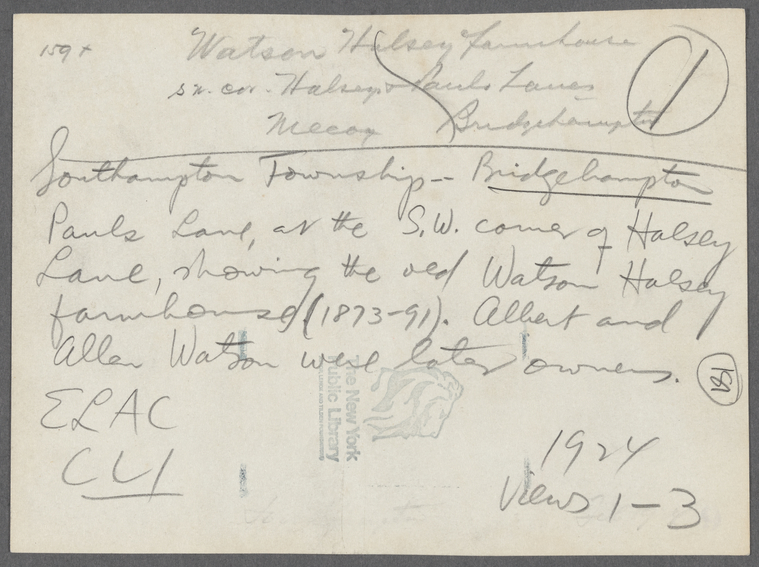 159+
Watson Halsey farmhouse
s.w. cor. Halsey & Pauls Lanes
Mecox Bridgehampton
1
Southampton Township -- Bridgehampton
Pauls Lane, at the S.W. corner of Halsey
Lane, showing the old Watson Halsey
farmhouse (1873-91). Albert and
Allen Watson were later owners.
181
ELAC
CLI
1924
Views 1-3
The New York
Public Library